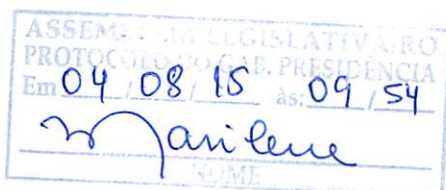 ASSEMBLEIA LEGISLATIVA/RO
PROTOCOLO DO GAB. PRESIDÊNCIA
Em 04 / 08 / 15 às: 09 / 54
Marilene
NOME